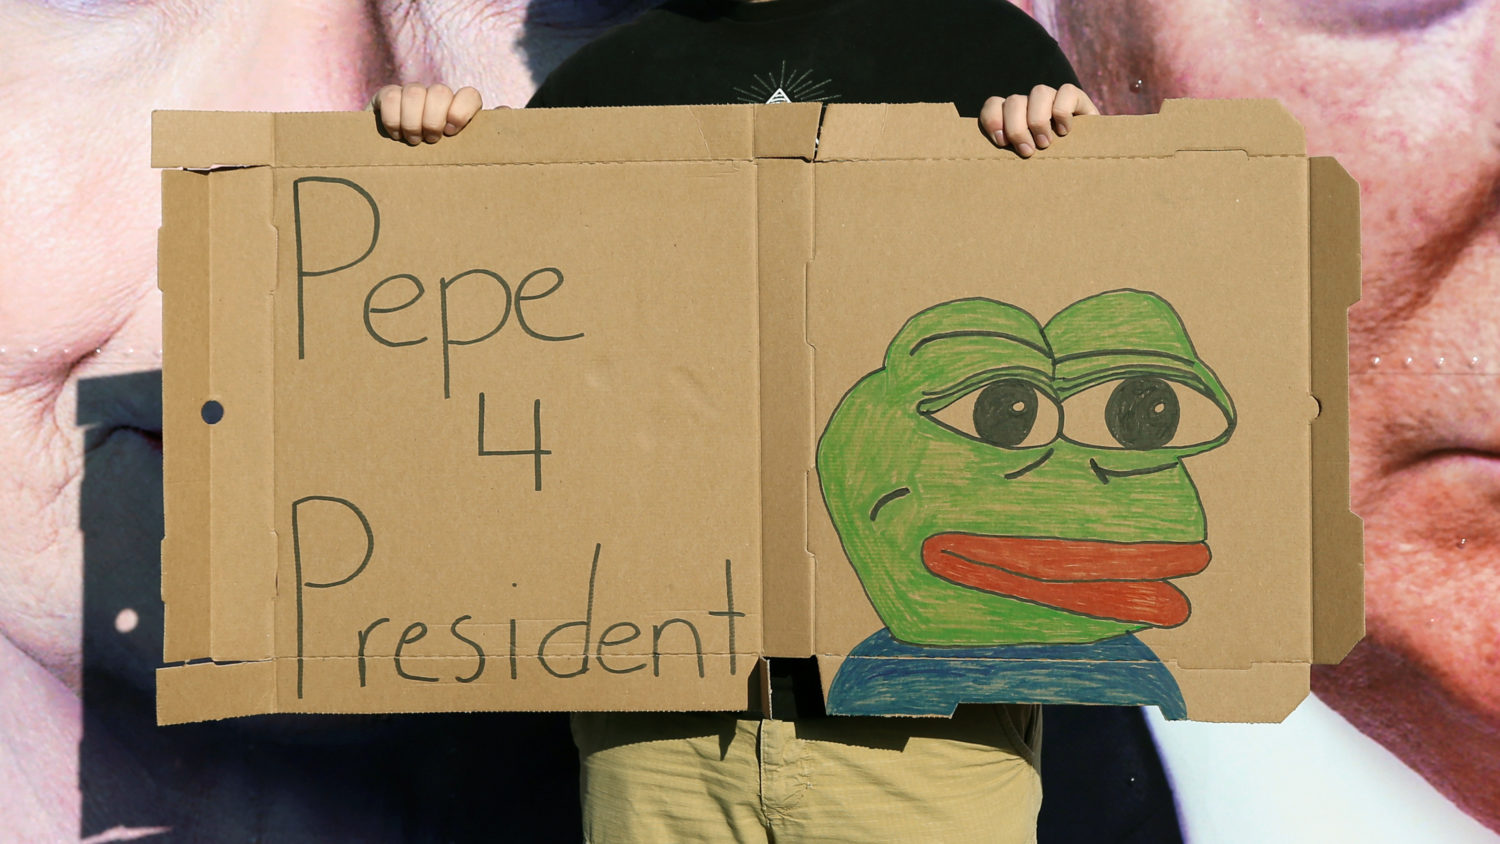 Pepe
4
President